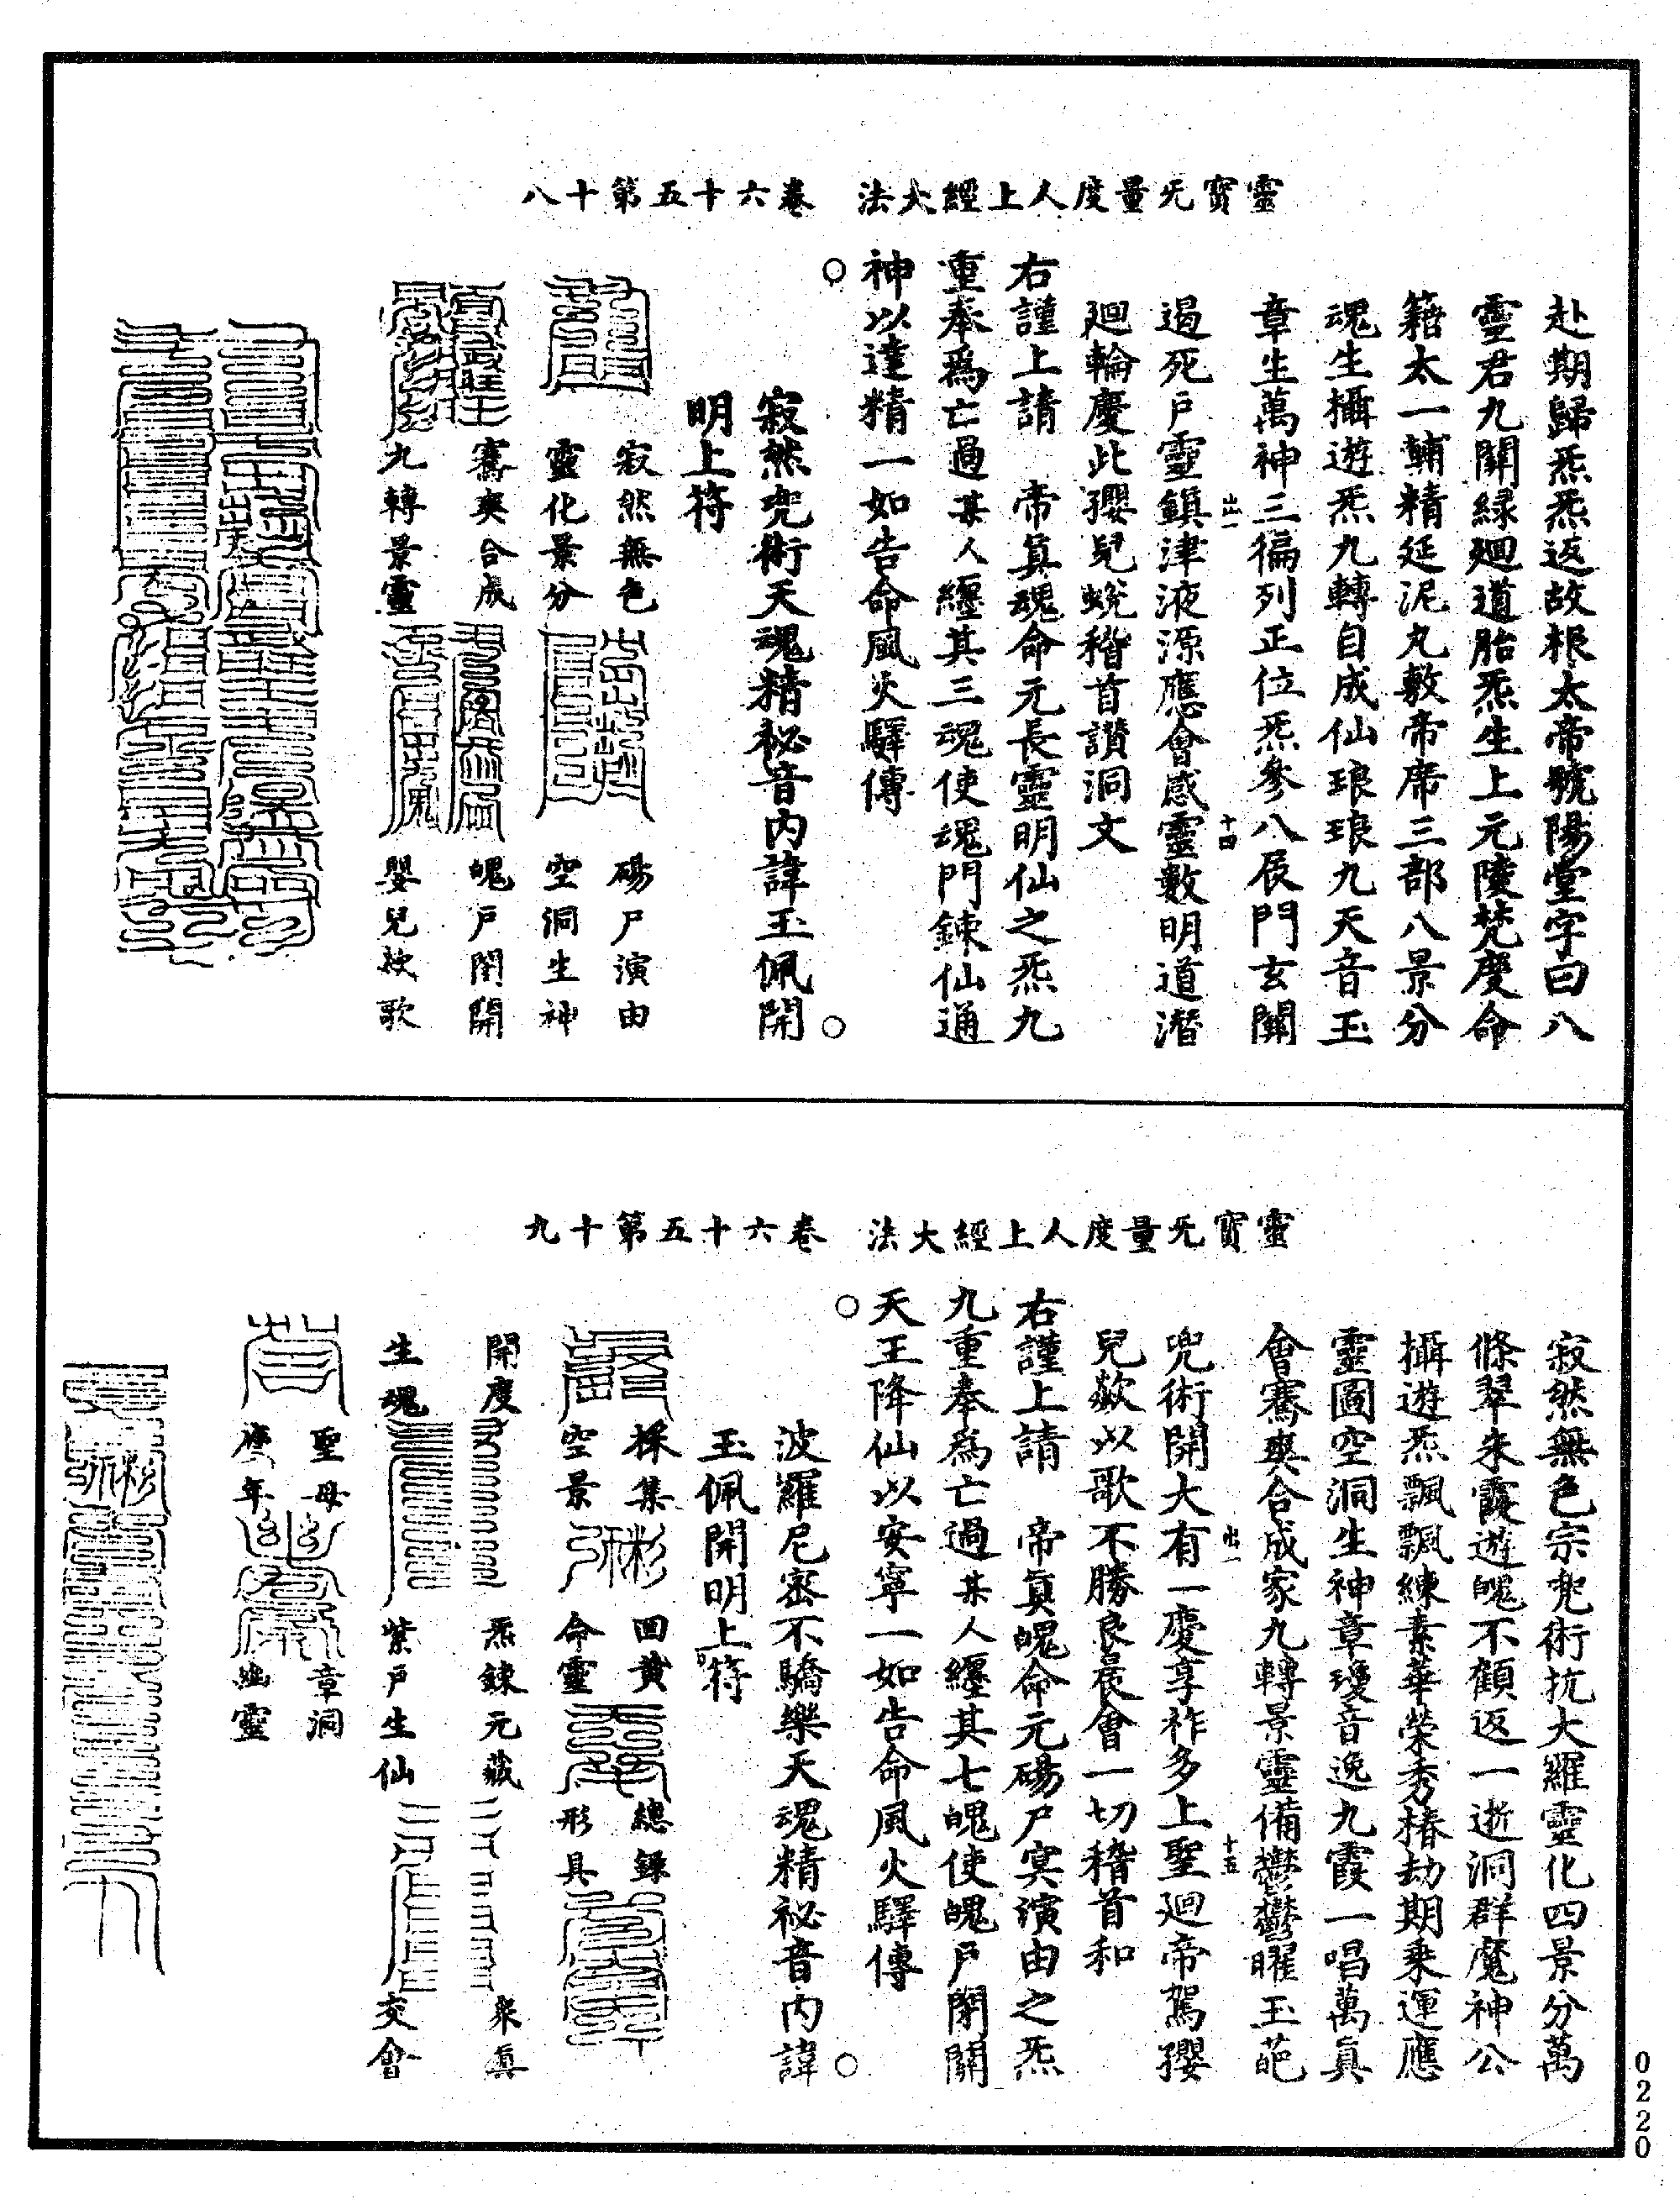 靈寶无量度人上經大法　卷六十五第十八
赴期歸炁炁返故根太帝號陽堂字曰八
靈君九關緑廻道胎炁生上元陵梵慶命
籍太一輔精延泥丸敷帝席三部八景分
魂生攝遊炁九轉自成仙琅琅九天音玉
章生萬神三徧列正位炁參八辰門玄關
出一　十四
遏死戶靈鎮津液源應會感靈數明道潛
廻輪慶此㺔兒蛻稽首讚洞文
右謹上請　帝真魂命元長靈明仙之炁九
重奉爲亡過某人纒其三魂使魂門鍊仙通
神以達精一如告命風火驛傳
○　○
寂然兜術天魂精祕音內諱玉佩開
明上符
寂然無色　碭尸演由
靈化景分　空洞生神
騫爽合成　魄戶閉開
九轉景靈　嬰兒按歌
靈寶无量度人上經大法　卷六十五第十九
寂然無色宗兜術抗大羅靈化四景分萬
條翠朱霞遊魄不顧返一逝洞群魔神公
攝遊炁飄飄練素華榮秀椿劫期乘運應
靈圖空洞生神章瓊音逸九霞一唱萬真
會騫爽合成家九轉景靈備鬱鬱曜玉葩
出一　十五
兜術開大有一慶享祚多上聖廻帝駕㺔
兒歘以歌不勝良晨會一切稽首和
右謹上請　帝真魄命元碭尸冥演由之炁
九重奉爲亡過某人纒其七魄使魄戶閉關
天王降仙以安寧一如告命風火驛傳
○　○
波羅尼密不驕樂天魂精祕音內諱
玉佩開明上符
採集　回黃　總錄
空景　命靈　形具
開度　炁鍊元藏　衆真
生魂　紫戶生仙　交會
聖母　章洞
年　幽靈
0220